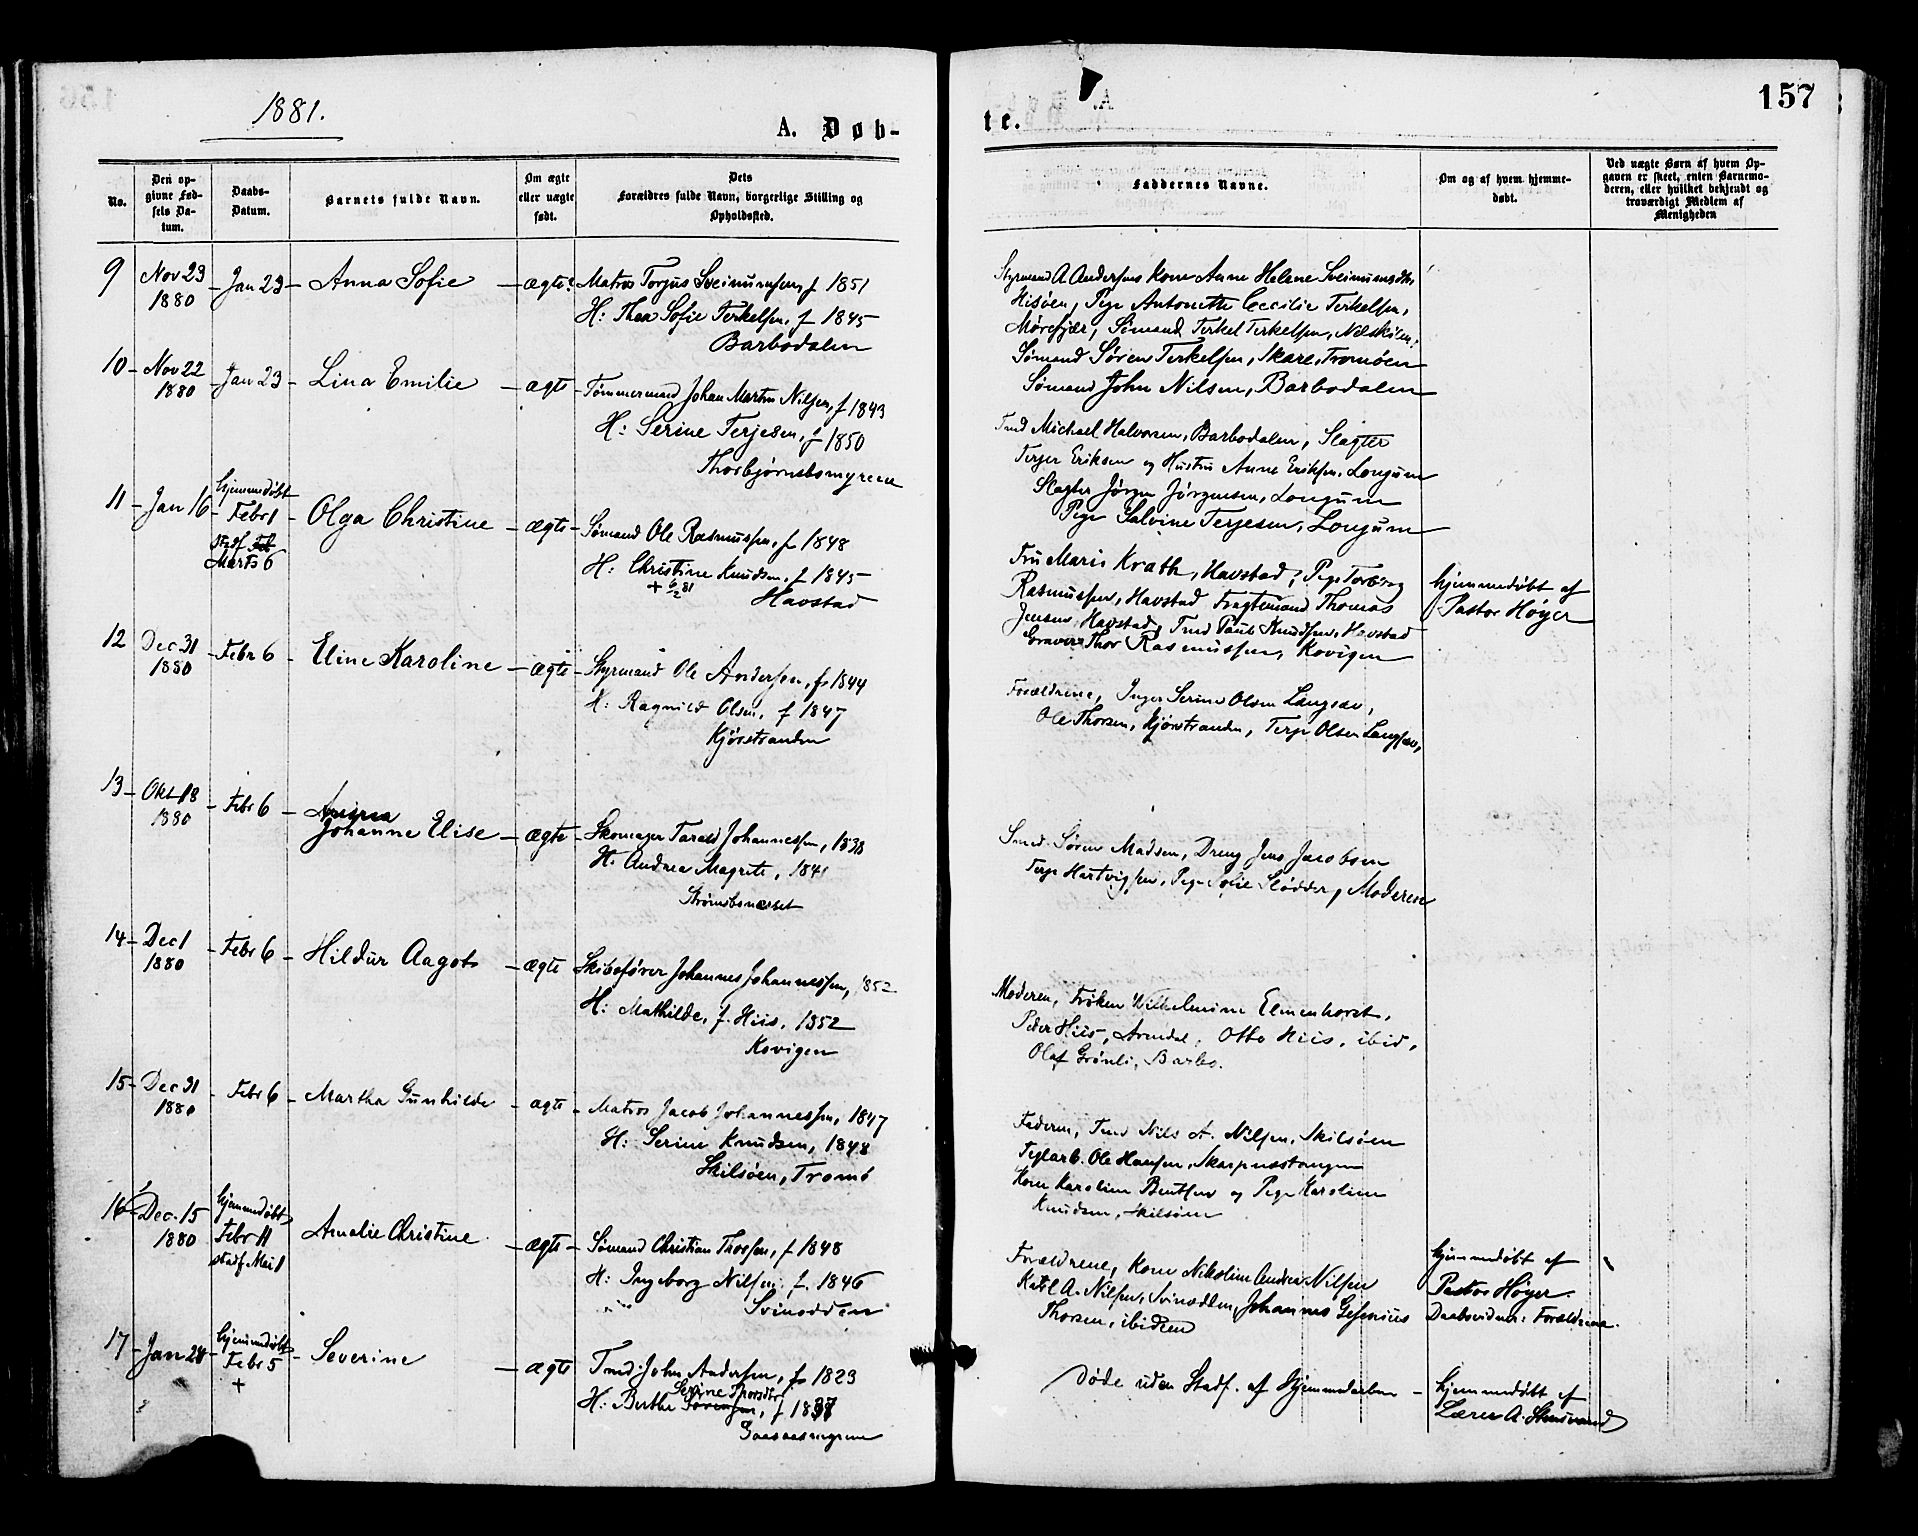 1881.
A. Døb-
No.
Den op-
givne Fød-
sels Da-
tum.
Daabs-
Datum.
Barnets fulde Navn.
Om ægte
eller uægte
født.
Dets
Forældres fulde Navn, borgerlige Stilling og
Opholdssted.
9 Nov 23 1880 - Jan 23 - Anna Sofie - ægte
Matros Torjus Sveinunsen, f 1851
H: Thea Sofie Terkelsen, f 1845
Barbodalen
10 - Nov 22 1880 - Jan 23 - Lina Emilie - ægte
Tømmermand Johan Martin Nilsen, f 1843
H: Serine Terjesen, f 1850
Thorbjørnsbomyrene
11 - Jan 16 - hjemmedøbt Febr 1 - Olga Christine - ægte -
stadf Feb
Marts 6
Sømand Ole Rasmussen, f 1848
H: Christine Knudsen, f 1845
+ 6/2 81
Havstad
12 Dec 31 1880 - Febr 6 - Eline Karoline - ægte -
Styrmand Ole Andersen, f 1844
H: Ragnild Olsen, f 1847
Kjørstranden
13 - Okt 18 1880 - Febr 6 -
Johanne Elise - ægte -
Skomager Tarald Johannessen, 1838
H: Andrea Magrete, 1841
Strømsbunesset
14 - Dec 1 1880 - Febr 6 - Hildur Aagot - ægte
Skibsfører Johannes Johannessen, 1852
H: Mathilde, f. Hiis, 1852
Kovigen
15 - Dec 31 1880 - Febr 6 - Martha Gunhilde - ægte -
Matros Jacob Johannessen, 1847
H: Serine Knudsen, 1848
Skilsøen, Tromø
16 Dec. 15 1880 hjemmedøbt Febr 11 stadf Mai 1 Amalie Christine - ægte -
Sømand Christian Thorsen, f 1848
H: Ingeborg Nilsen, f. 1846
Svinodden
17 - Jan 28 - hjemmedøbt Febr 5 - Severine - ægte
+
Tmd. John Andersen, f 1823
Serine Thorsdtr
H: Berthe Sørensen, f 1837
157
te.
Faddernes Navne.
Om og af hvem hjemme-
døbt.
Ved uægte Børn af hvem Op-
gaven er skeet, enten Barnemo-
deren, eller hvilket bekjendt og
troværdigt Medlem af
Menigheden
Styrmand A Andersens Kone Anne Helene Sveinunsdtr
Hisøen, Pige Antonette Cecilie Terkelsen,
Mørefjær, Sømand Terkel Terkelsen,
Sømand Søren Terkelsen, Skare, Tromøen
Sømand John Nilsen, Barbodalen
Tmd Michael Halvorsen, Barbodalen, Slagter
Terjer Eriksen og Hustru Anne Eriksen, Longum
Slagter Jørgen Jørgensen, Longum
Pige Salvine Terjesen, Longum
Fru Marie Krath, Havstad, Pige Torborg
Rasmussen, Havstad Fragtemand Thomas
Jensen, Havstad, Tmd Paul Knudsen, Havstad
Graver Thor Rasmussen, Kovigen
hjemmedøbt af
Pastor Høyer
Forældrene, Inger Serine Olsen Langsæ,
Ole Thorsen, Kjørstranden, Terje Olsen Langsæ,
Smed Søren Madsen, Dreng Jens Jacobsen
Terje Hartvigsen, Pige Sofie Slødder, Moderen
Moderen, Frøken Wilhelmine Elmenhorst,
Peder Hiis, Arendal, Otto Hiis, ibid,
Olaf Grønli, Barbo.
Faderen, Tmd Nils A. Nilsen, Skilsøen
Teglarb. Ole Hansen, Skarpnæstangen
Kone Karoline Bentsen og Pige Karoline
Knudsen, Skilsøen
Forældrene, Kone Nikoline Andrea Nilsen
Ketil A. Nilsen, Svinodden, Johannes Gesenius
Thorsen, ibidem
hjemmedøbt af
Pastor Høyer.
Daabsvidner: Forældrene.
Døde uden Stadf. af Hjemmedaaben -
hjemmedøbt af
Lærer A. Stensvand